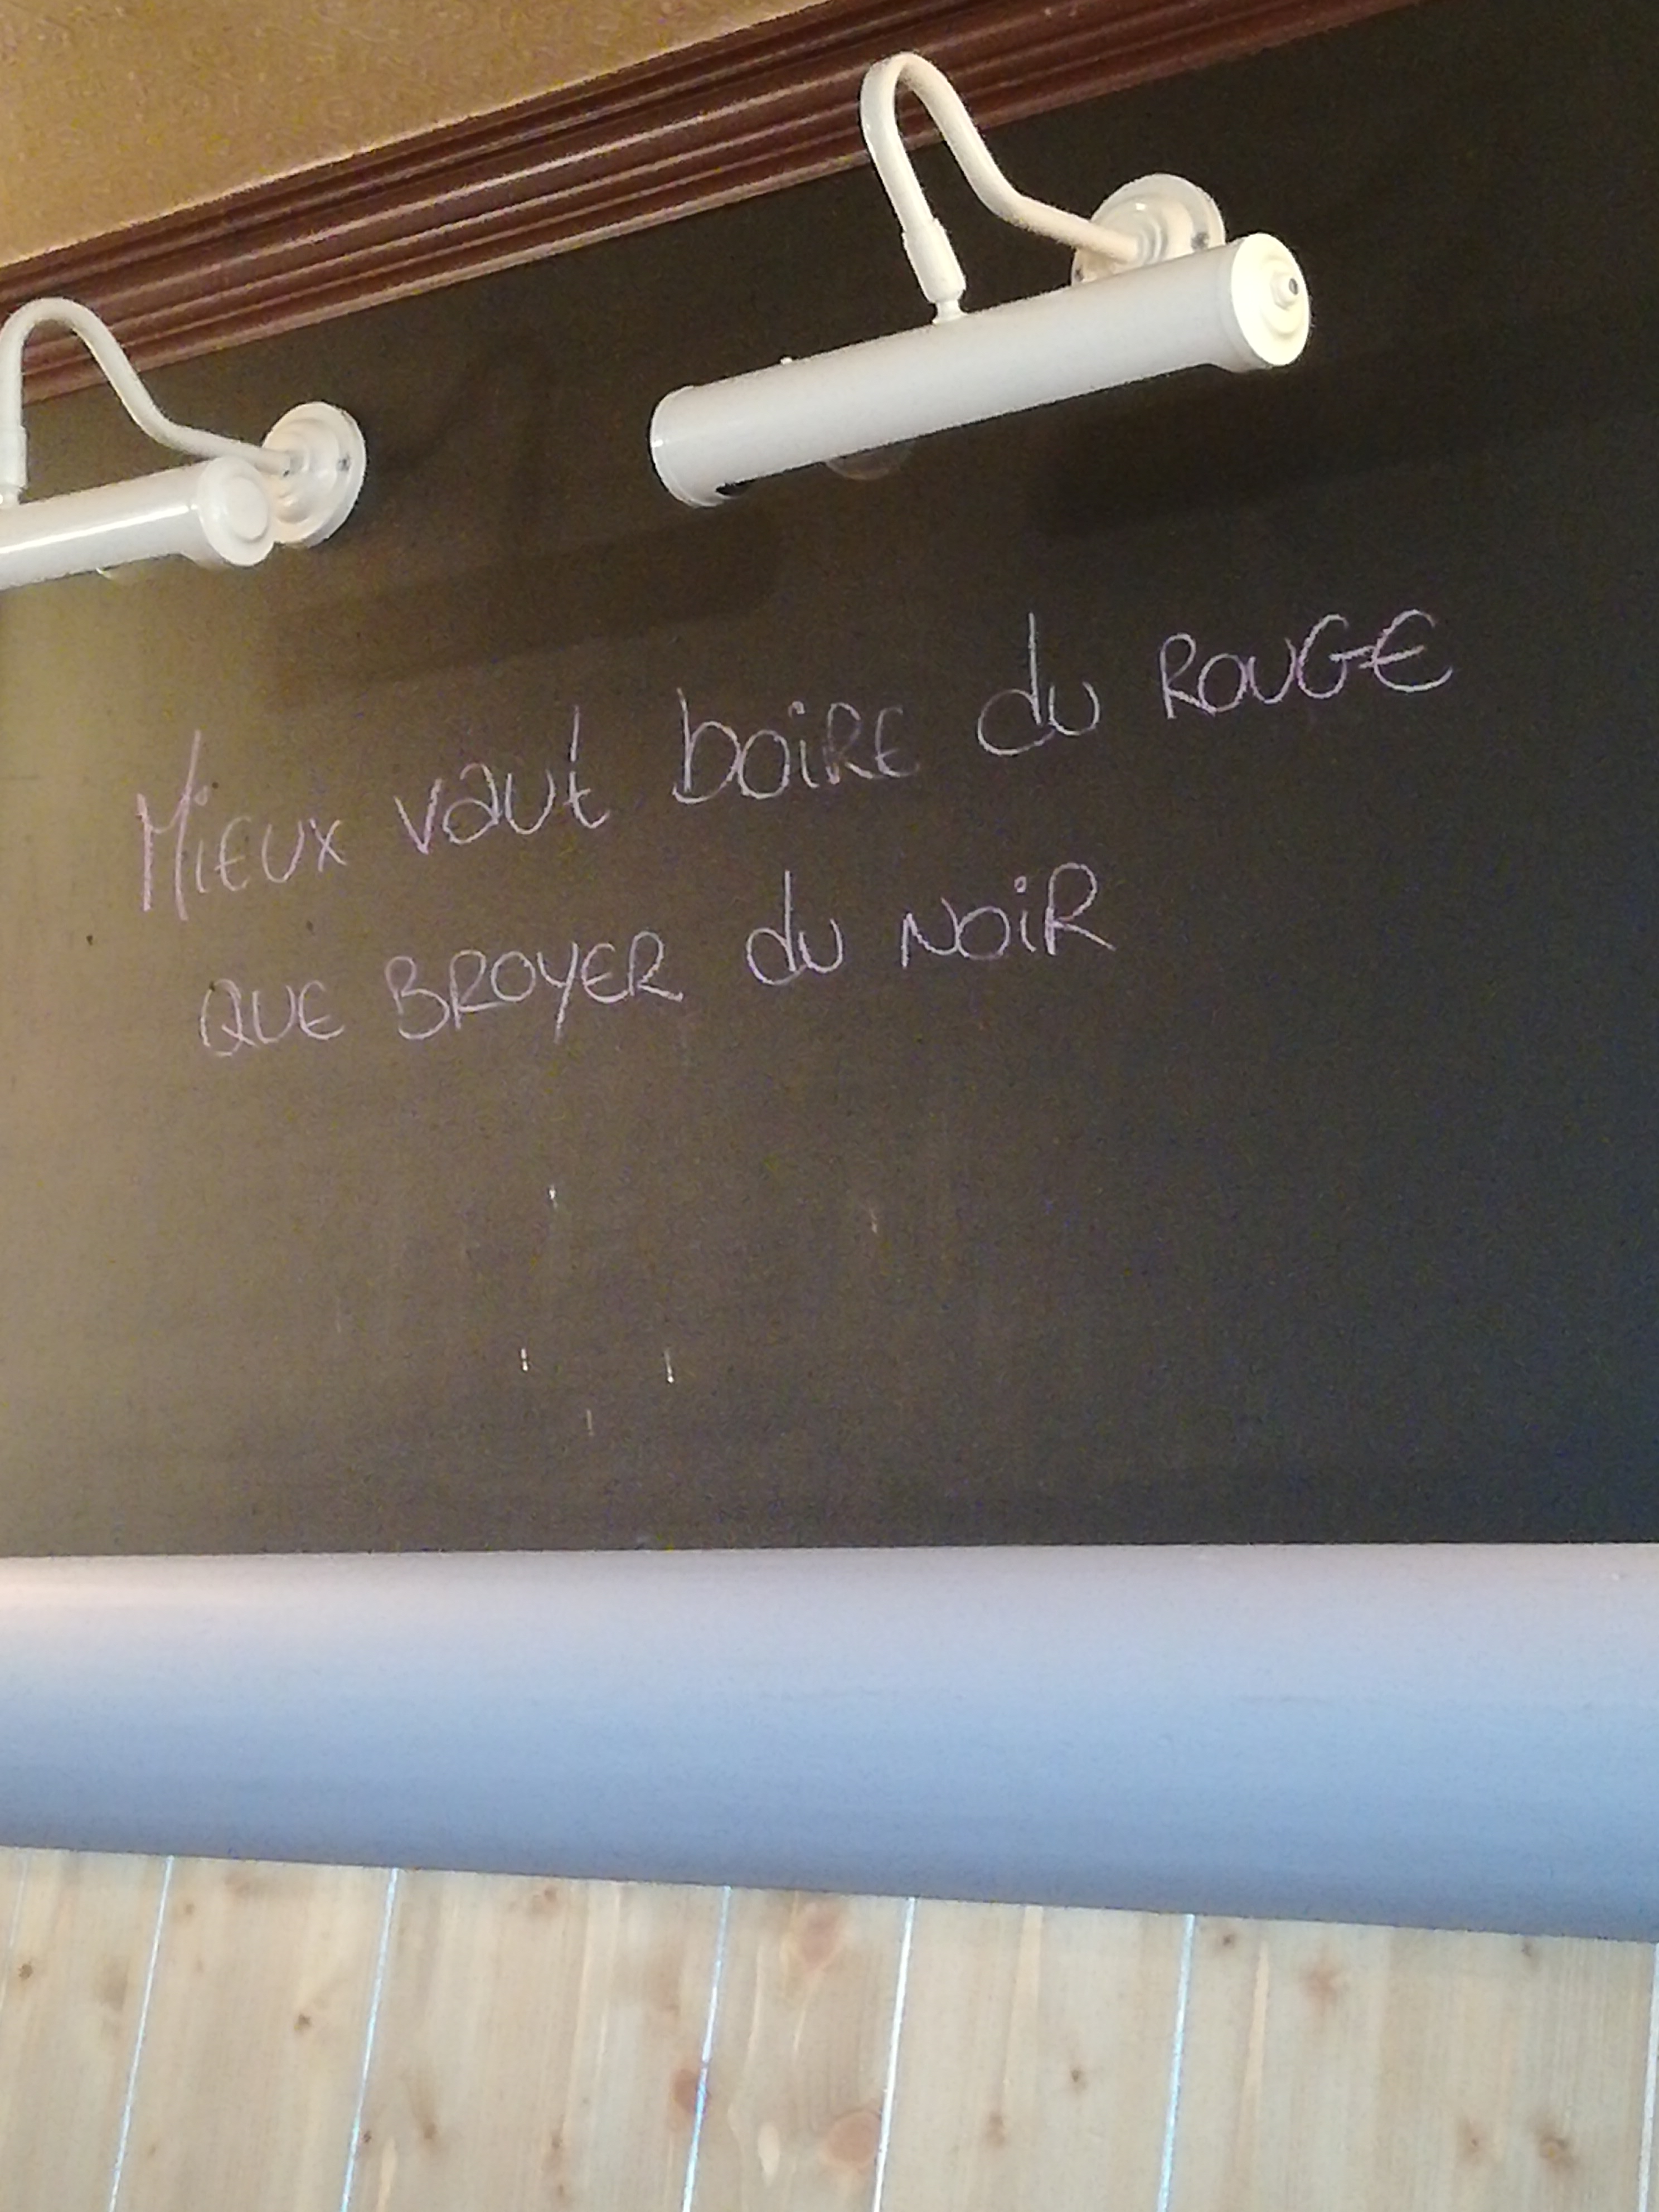 Mieux vaut boire du ROUGE
QUE BROYER du NOIR